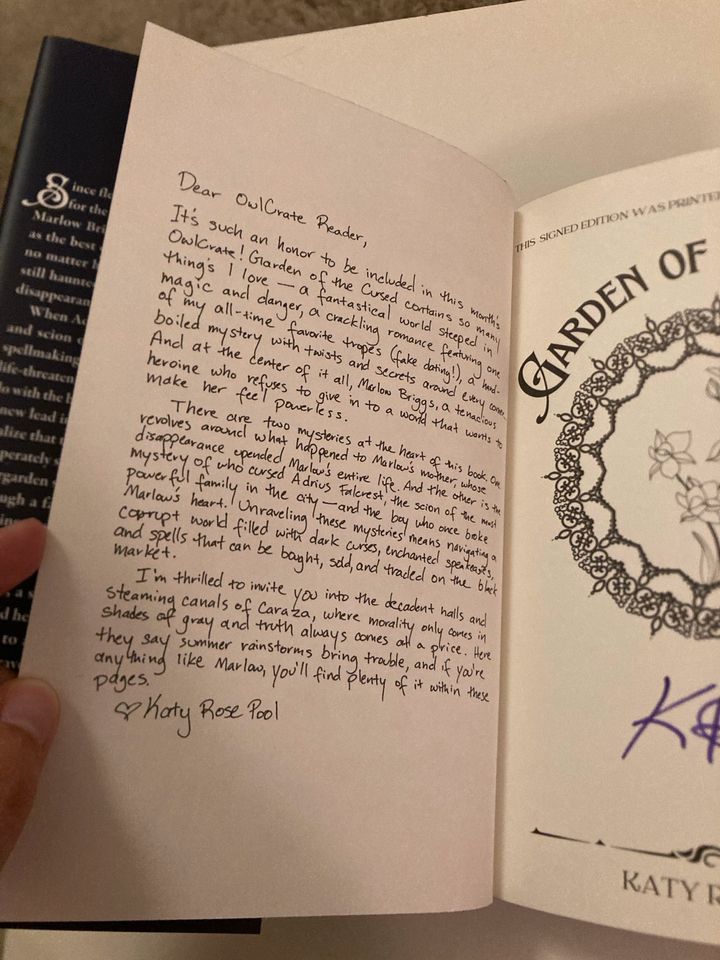 Since fle
for the
Marlow Bri
as the best
no matter h
still haunte
disappearan
When Ad
and scion o
spellmaking
life-threaten
o with the l
new lead i
alize that t
perately s
garden
ugh a f
Dear OwlCrate Reader,
It's such an honor to be included in this month's
OwlCrate! Garden of the Cursed contains so many
thing's I love — a fantastical world steeped in
magic and danger, a crackling romance featuring one
of my all-time favorite tropes (fake dating!), a hard-
boiled mystery with twists and secrets around every corner.
And at the center of it all, Marlow Briggs, a tenacious
heroine who refuses to give in to a word that wants to
make her feel powerless.
There are two mysteries at the heart of this book. One
revolves around what happened to Marlow's mother, whose
disappearance upended Marlow's entire life. And the other is the
mystery of who cursed Adrius Falcrest, the scion of the most
powerful family in the city — and the boy who once broke
Marlow's heart. Unraveling these mysteries means navigating a
corrupt world filled with dark curses, enchanted speakeasies,
and spells that can be bought, sold, and traded on the black
market.
I'm thrilled to invite you into the decadent halls and
steaming canals of Caraza, where morality only comes in
shades of gray and truth always comes at a price. Here
they say summer rainstorms bring trouble, and if you're
anything like Marlow, you'll find plenty of it within these
pages.
♡ Katy Rose Pool
THIS SIGNED EDITION WAS PRINTED
GARDEN OF
KATY R